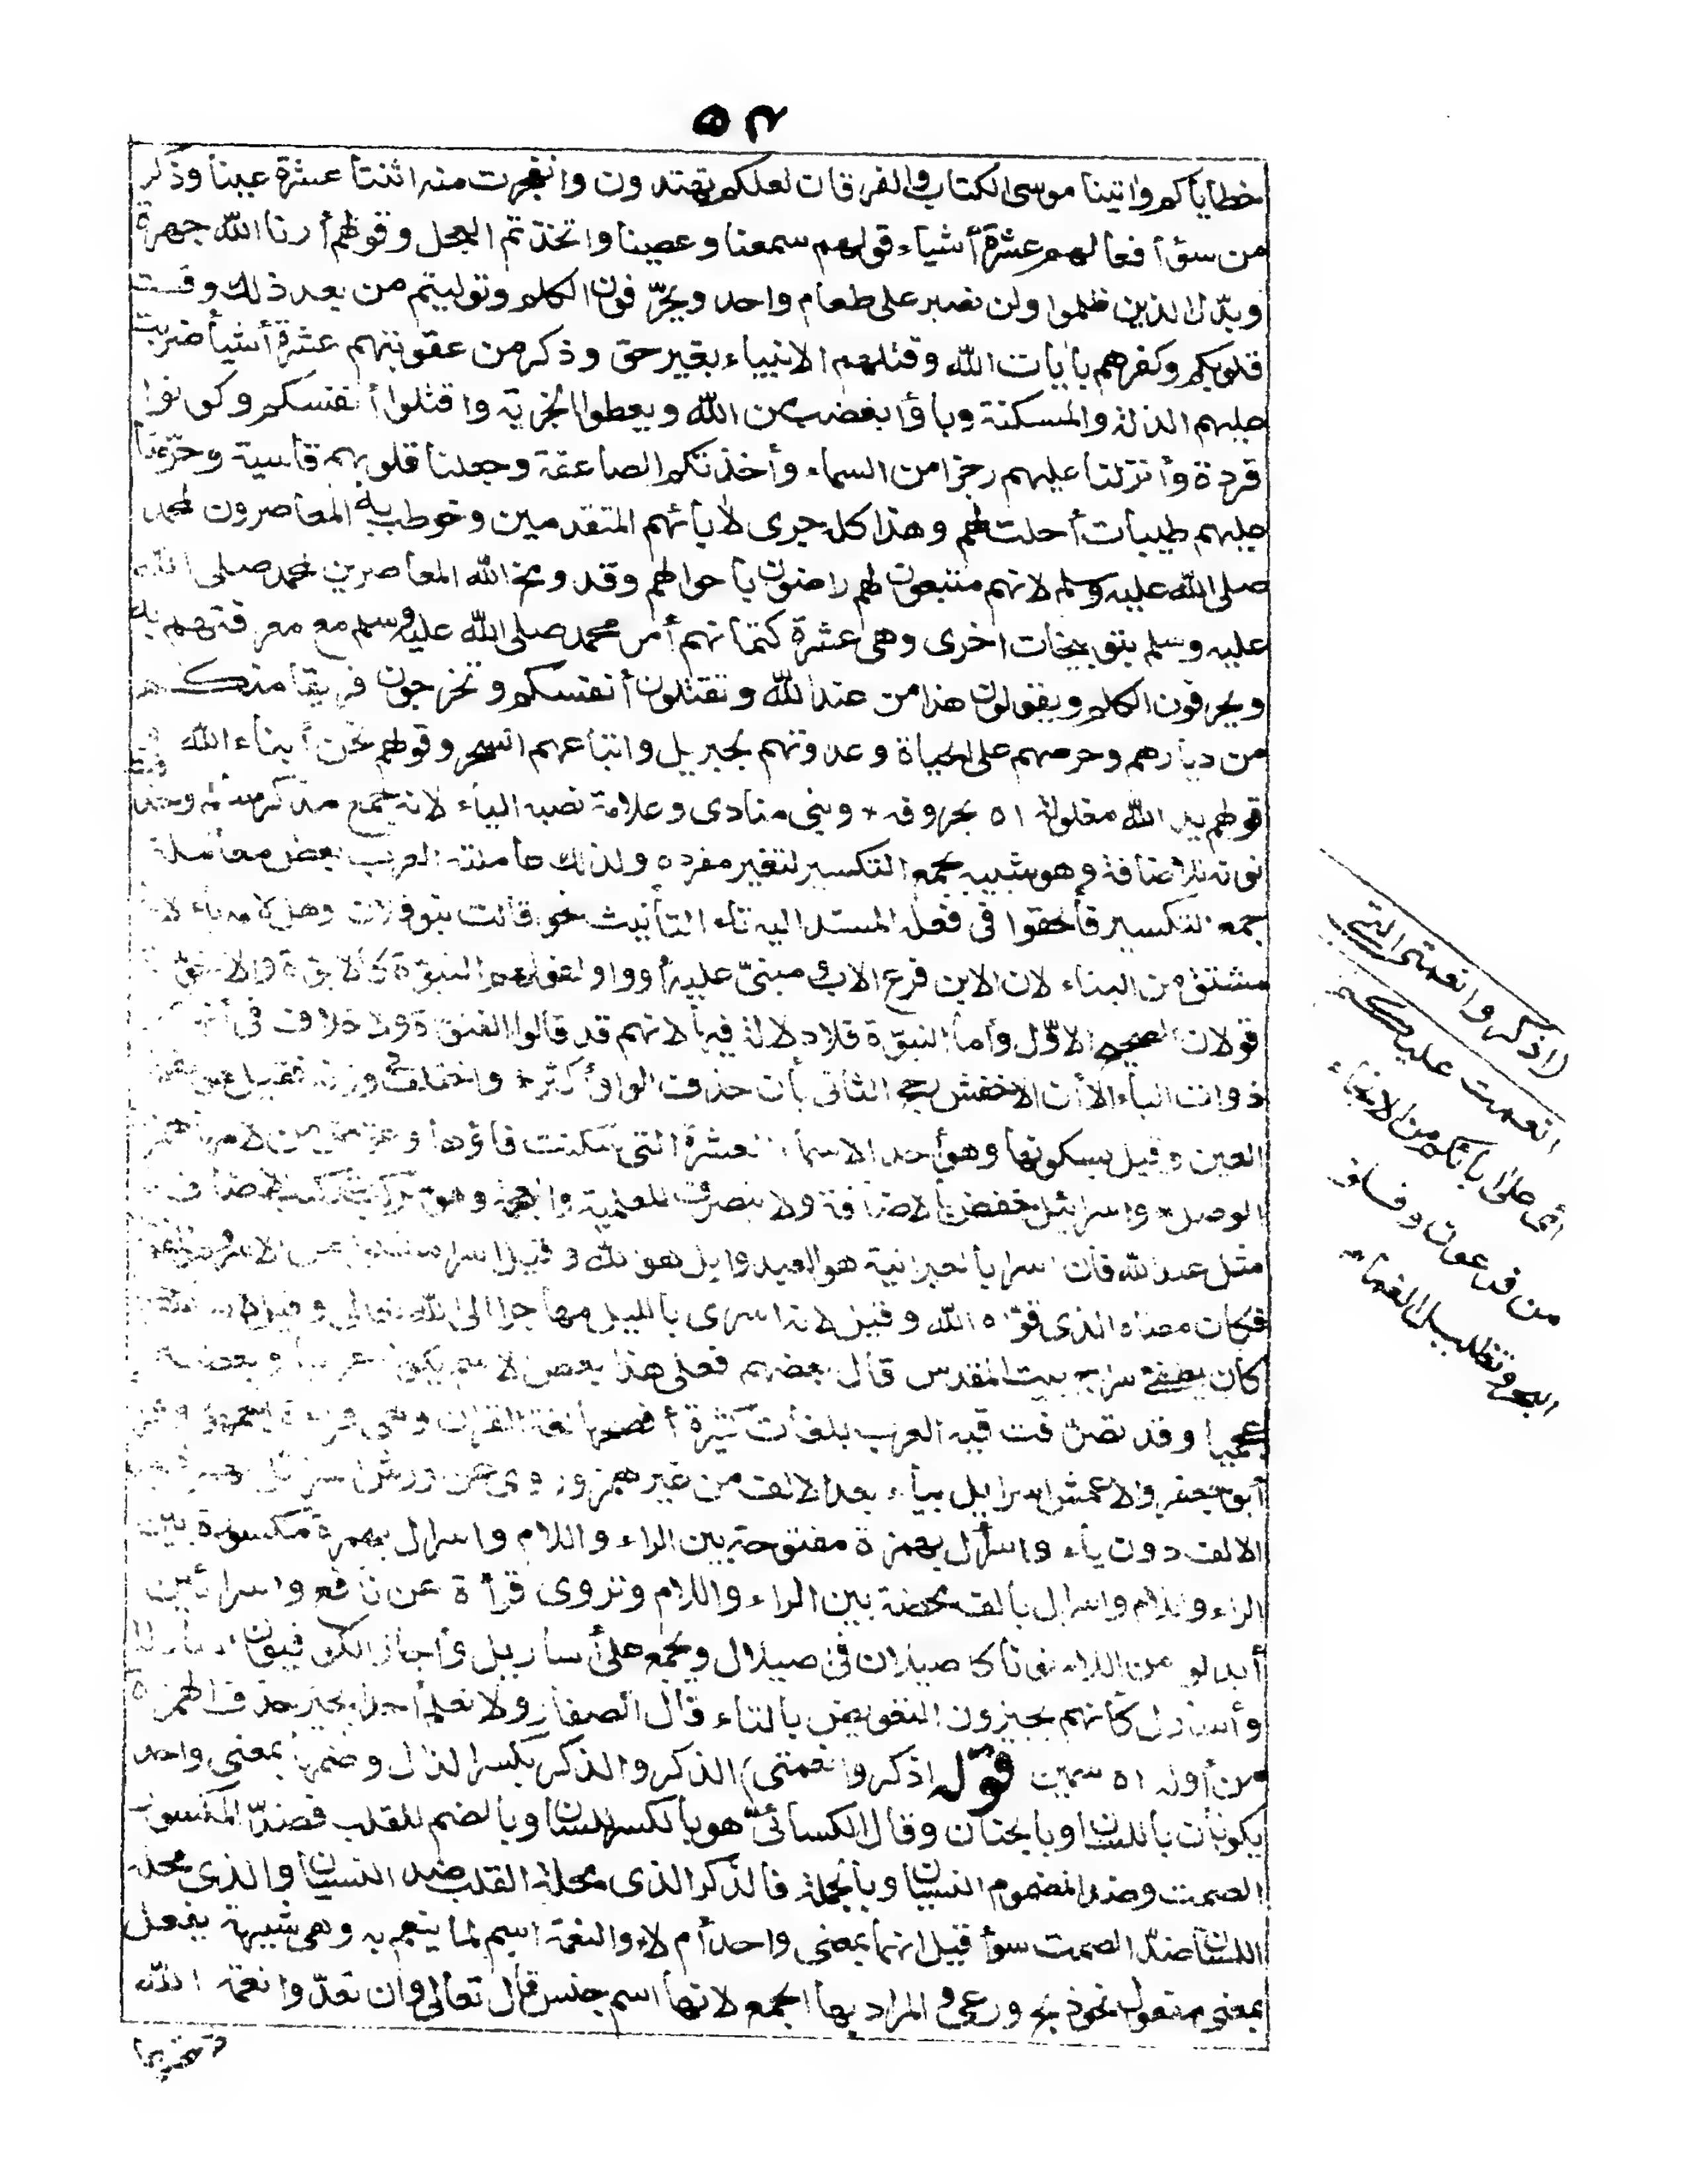 ٥٤
خطاياكم واتينا موسى الكتاب والفرقان لعلكم تهتدون وانفجرت منه اثنتا عشرة عينا وذكر
من سوٓأ فعالهم عشرة أشياء قولهم سمعنا وعصينا واتخذتم العجل وقولهم أرنا اللّٰه جهرة
وبدّل الذين ظلموا ولن نصبر على طعام واحد ويحرّفون الكلم وتوليتم من بعد ذلك وقست
قلوبكم وكفرهم بأيات اللّٰه وقتلهم الانبياء بغير حق وذكر من عقوبتهم عشرة أشيأ ضربت
عليهم الذلة والمسكنة وباؤا بغضب من اللّٰه ويعطوا الجزية واقتلوا أنفسكم وكونوا
قردة وأنزلنا عليهم رجزا من السماء وأخذتكم الصاعقة وجعلنا قلوبهم قاسية وحرّمنا
عليهم طيبات أحلت لهم وهذا كله جرى لأبائهم المتقدمين وخوطب به المعاصرون لمحمد
صلى اللّٰه عليه وسلم لانهم متبعون لهم راضون بأحوالهم وقد وبخ اللّٰه المعاصرين لمحمد صلى اللّٰه
عليه وسلم بتوبيخات اخرى وهى عشرة كتمانهم أمر محمد صلى اللّٰه عليه وسلم مع معرفتهم به
ويحرفون الكلم ويقولون هذا من عند اللّٰه وتقتلون أنفسكم وتخرجون فريقا منكم
من ديارهم وحرصهم على الحياة وعدوتهم لجبريل واتباعهم السحر وقولهم نحن أبناء اللّٰه
قولهم يد اللّٰه مغلولة ا ه بحروفه * وبنى منادى وعلامة نصبه الياء لانه جمع مذكر سالم وحذفت
نونه للاضافة وهو شبيه بجمع التكسير لتغير مفرده ولذلك عاملته العرب بعض معاملة
جمع التكسير فألحقوا فى فعله المسند اليه تاء التأنيث نحو قالت بنو فلان وهل لامه ياء لانه
مشتق من البناء لان الابن فرع الاب ومبنىّ عليه أو واو لقولهم البنوّة كالابوّة والاخوّة
قولان الصحيح الاوّل وأما البنوّة فلا دلالة فيها لانهم قد قالوا الفتوّة ولا خلاف فى أنها من
ذوات الياء الا أن الاخفش رجح الثانى بأن حذف الواو أكثر * واختلف فى وزنه فقيل هو بفتح
العين وقيل بسكونها وهو أحد الاسماء العشرة التى سكنت فاؤها وعوّض من لامها همزة
الوصل * واسرائيل خفض بالاضافة ولا ينصرف للعلمية والعجمة وهو مركب تركيب الاضافة
مثل عبد اللّٰه فان اسرا بالعبرانية هو العبد وايل هو اللّٰه وقيل اسرا مشتق من الاسر وهو القوّة
فكان معناه الذى قوّاه اللّٰه وقيل لانه اسرى بالليل مهاجرا الى اللّٰه تعالى وقيل لانه
كان يطفئ سراج بيت المقدس قال بعضهم فعلى هذا بعض الاسم يكون عربيا وبعضه
عجميا وقد تصرّفت فيه العرب بلغات كثيرة أفصحها لغة القرآن وهى قراءة الجمهور وقرأ
أبو جعفر والاعمش اسرايل بياء بعد الالف من غير همز وروى عن ورش
الالف دون ياء واسرأل بهمزة مفتوحة بين الراء واللام واسرئل بهمزة مكسورة بين
الراء واللام واسرال بألف محضة بين الراء واللام وتروى قرأة عن نافع واسرائين
أبدلوا من اللام نونا كأصيلان فى أصيلال ويجمع على أساريل وأجاز الكوفيون أسارلة
وأسارل كأنهم يجيزون التعويض بالتاء قال الصفار ولا نعلم أحدا يجيز حذف الهمزة
من أوله ا ه سمين قوله اذكروا نعمتى) الذكر والذكر بكسر الذال وضمها بمعنى واحد
يكونان باللسان وبالجنان وقال الكسائىّ هو بالكسر للسان وبالضم للقلب فضدّ المكسور
الصمت وضد المضموم النسيان وبالجملة فالذكر الذى محلة القلب ضد النسيان والذى محله
اللسان ضدّ الصمت سوأ قيل انهما بمعنى واحد أم لا والنعمة اسم لما ينعم به وهى شبيهة بفعل
بمعنى مفعول نحو ذبح ورعى والمراد بها الجمع لانها اسم جنس قال تعالى وان تعدّوا نعمة اللّٰه
(اذكروا نعمتى التى
انعمت عليكم)
أى على أبائكم من الانجاء
من فرعون وفلق
البحر وتظليل الغمام